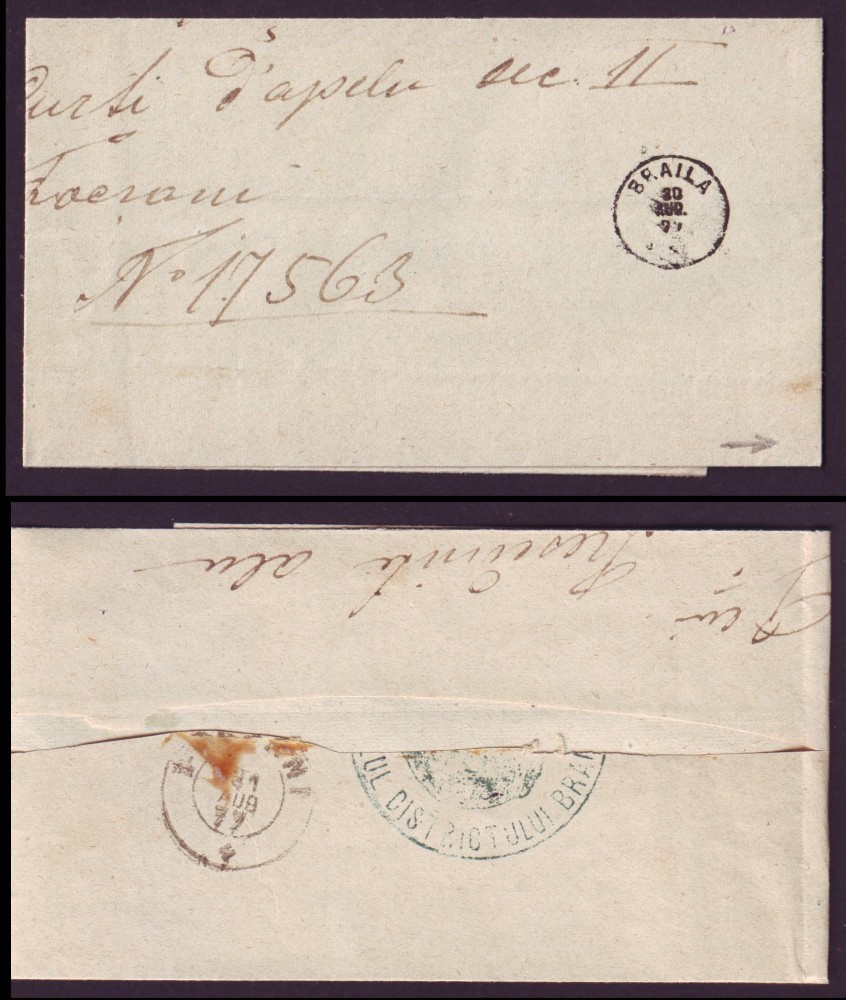 Curti d'apelu sec. II
Focsani
No 17563
BRAILA
20
AUG.
77
Presiinte alu
31
AUG
77
UL DISTRICTULUI BRAI